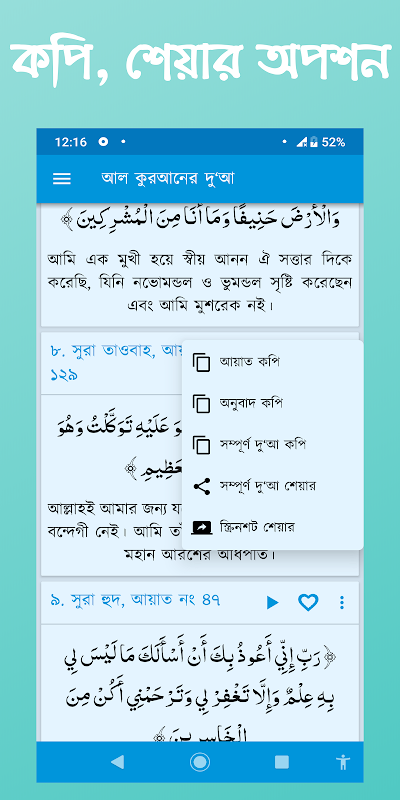 কপি, শেয়ার অপশন
12:16
52%
আল কুরআনের দু'আ
وَالْأَرْضَ حَنِيفًا وَمَا أَنَا مِنَ الْمُشْرِكِينَ ﴾
আমি এক মুখী হয়ে স্বীয় আনন ঐ সত্তার দিকে
করেছি, যিনি নভোমন্ডল ও ভুমন্ডল সৃষ্টি করেছেন
এবং আমি মুশরেক নই।
৮. সুরা তাওবাহ,
১২৯
عَلَيْهِ تَوَكَّلْتُ وَهُوَ
আল্লাহই আমার জন্য
বন্দেগী নেই। আমি
মহান আরশের
আয়াত কপি
অনুবাদ কপি
সম্পূর্ণ দু'আ কপি
সম্পূর্ণ দু'আ শেয়ার
স্ক্রিনশট শেয়ার
৯. সুরা হুদ, আয়াত নং ৪৭
﴿ رَبِّ إِنِّي أَعُوذُ بِكَ أَنْ أَسْأَلَكَ مَا لَيْسَ لِي
بِهِ عِلْمٌ وَإِلَّا تَغْفِرْ لِي وَتَرْحَمْنِي أَكُنْ مِنَ
الْخَاسِرِينَ ﴾